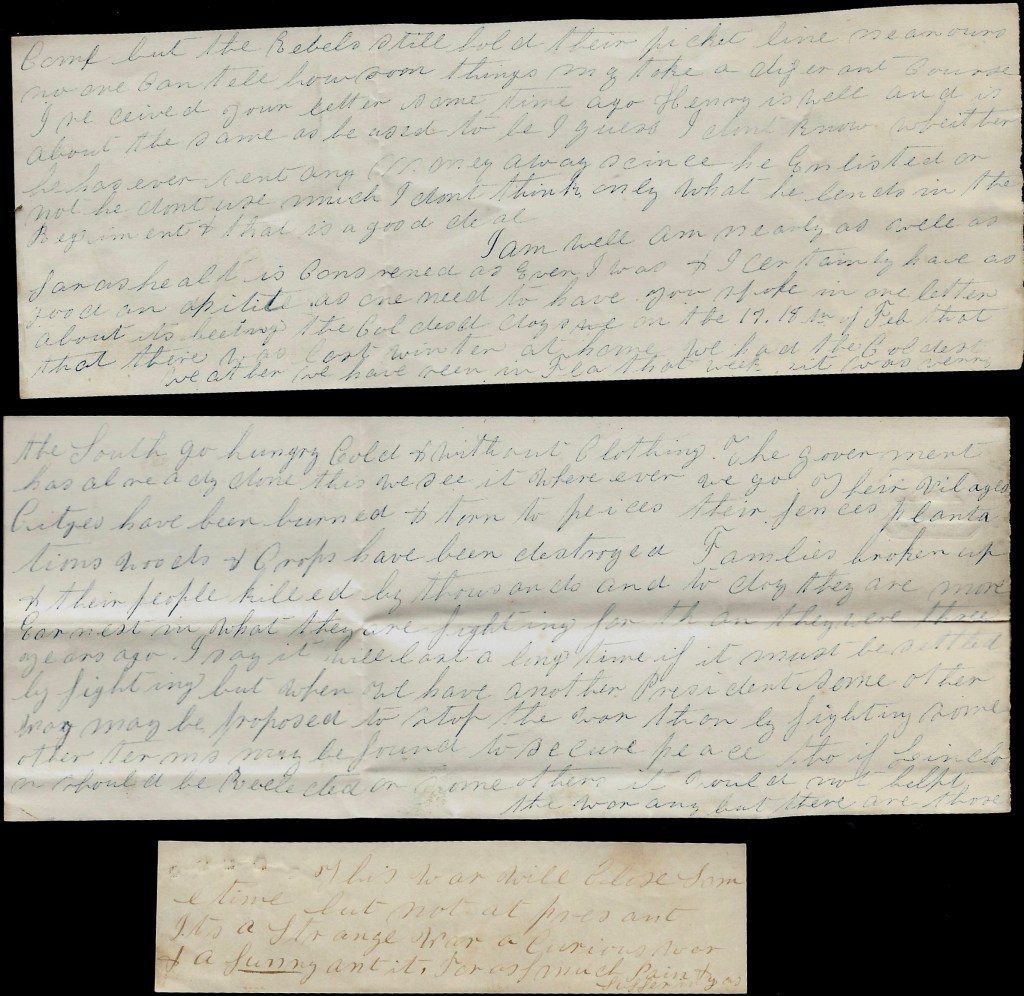 Come but the Rebels still hold their picket line near ours
no one can tell how soon things my take a diferant Course
I re ceived your letter some time ago Henry is well and is
about the same as he used to be I guess I dont know wheither
he has ever sent any money away scince he Enlisted or
not he dont use much I dont think only what he lends in the
Regriment & that is a good deal
I am well am nearly as well as
far as healt is Conserened as Ever I was & I certainly have as
good an apitite as one need to have. you spoke in one letter
about its beeing the Coldesd days we on the 17. 18 th of Feb that
that there was last winter at home we had the Coldest
weather we have seen in Fla that week. it was very
the South go hungry Cold & without Clothing. The goverment
has al ready done this we see it where ever we go Their vilages
Cityes have been burned & torn to peices their fences planta
tions woods & Crops have been destroyed Families broken up
& their people killed by thousands and to day they are more
Earnest in what they are fighting for than they were three
years ago. I say it will last a long time if it must be settled
by fighting but when we have another President some other
way may be proposed to stop the war than by fighting some
other terms may be found to secure peace tho if Linclo
n should be Reelected or some other it would not help
the war any but there are those
This war will Close Som
e time but not at presant
Its a Strange War a Curious war
& a funny ant it. For as much Pain &
as